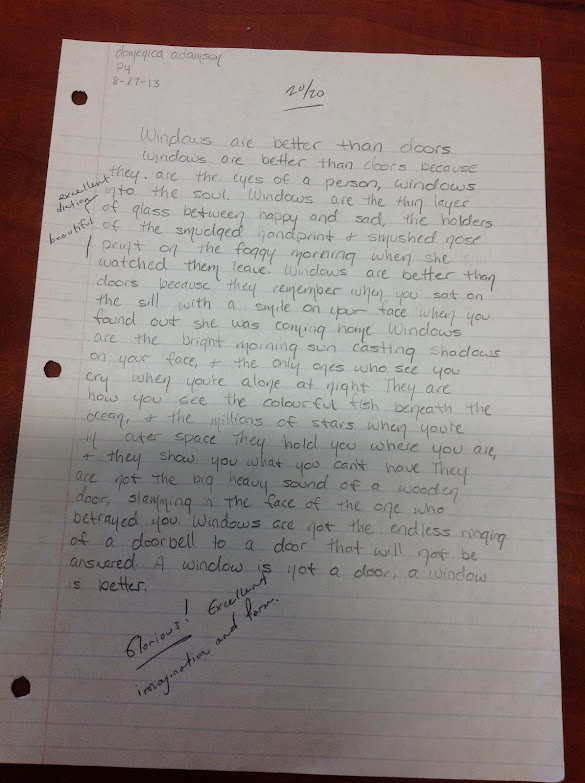 domenica adamson
P4
8-27-13
20/20
Windows are better than doors.
Windows are better than doors because
they are the eyes of a person, windows
excellent diction
into the soul. Windows are the thin layer
of glass between happy and sad, the holders
beautiful
of the smudged handprint & smushed nose
print on the foggy morning when she
watched them leave. Windows are better than
doors because they remember when you sat on
the sill with a smile on your face when you
found out she was coming home. Windows
are the bright morning sun casting shadows
on your face, & the only ones who see you
cry when you're alone at night They are
how you see the colourful fish beneath the
ocean, & the millions of stars when you're
in outer space They hold you where you are,
& they show you what you can't have They
are not the big heavy sound of a wooden
door, slamming in the face of the one who
betrayed you. Windows are not the endless ringing
of a doorbell to a door that will not be
answered. A window is not a door, a window
is better.
Glorious! Excellent
imagination and form.